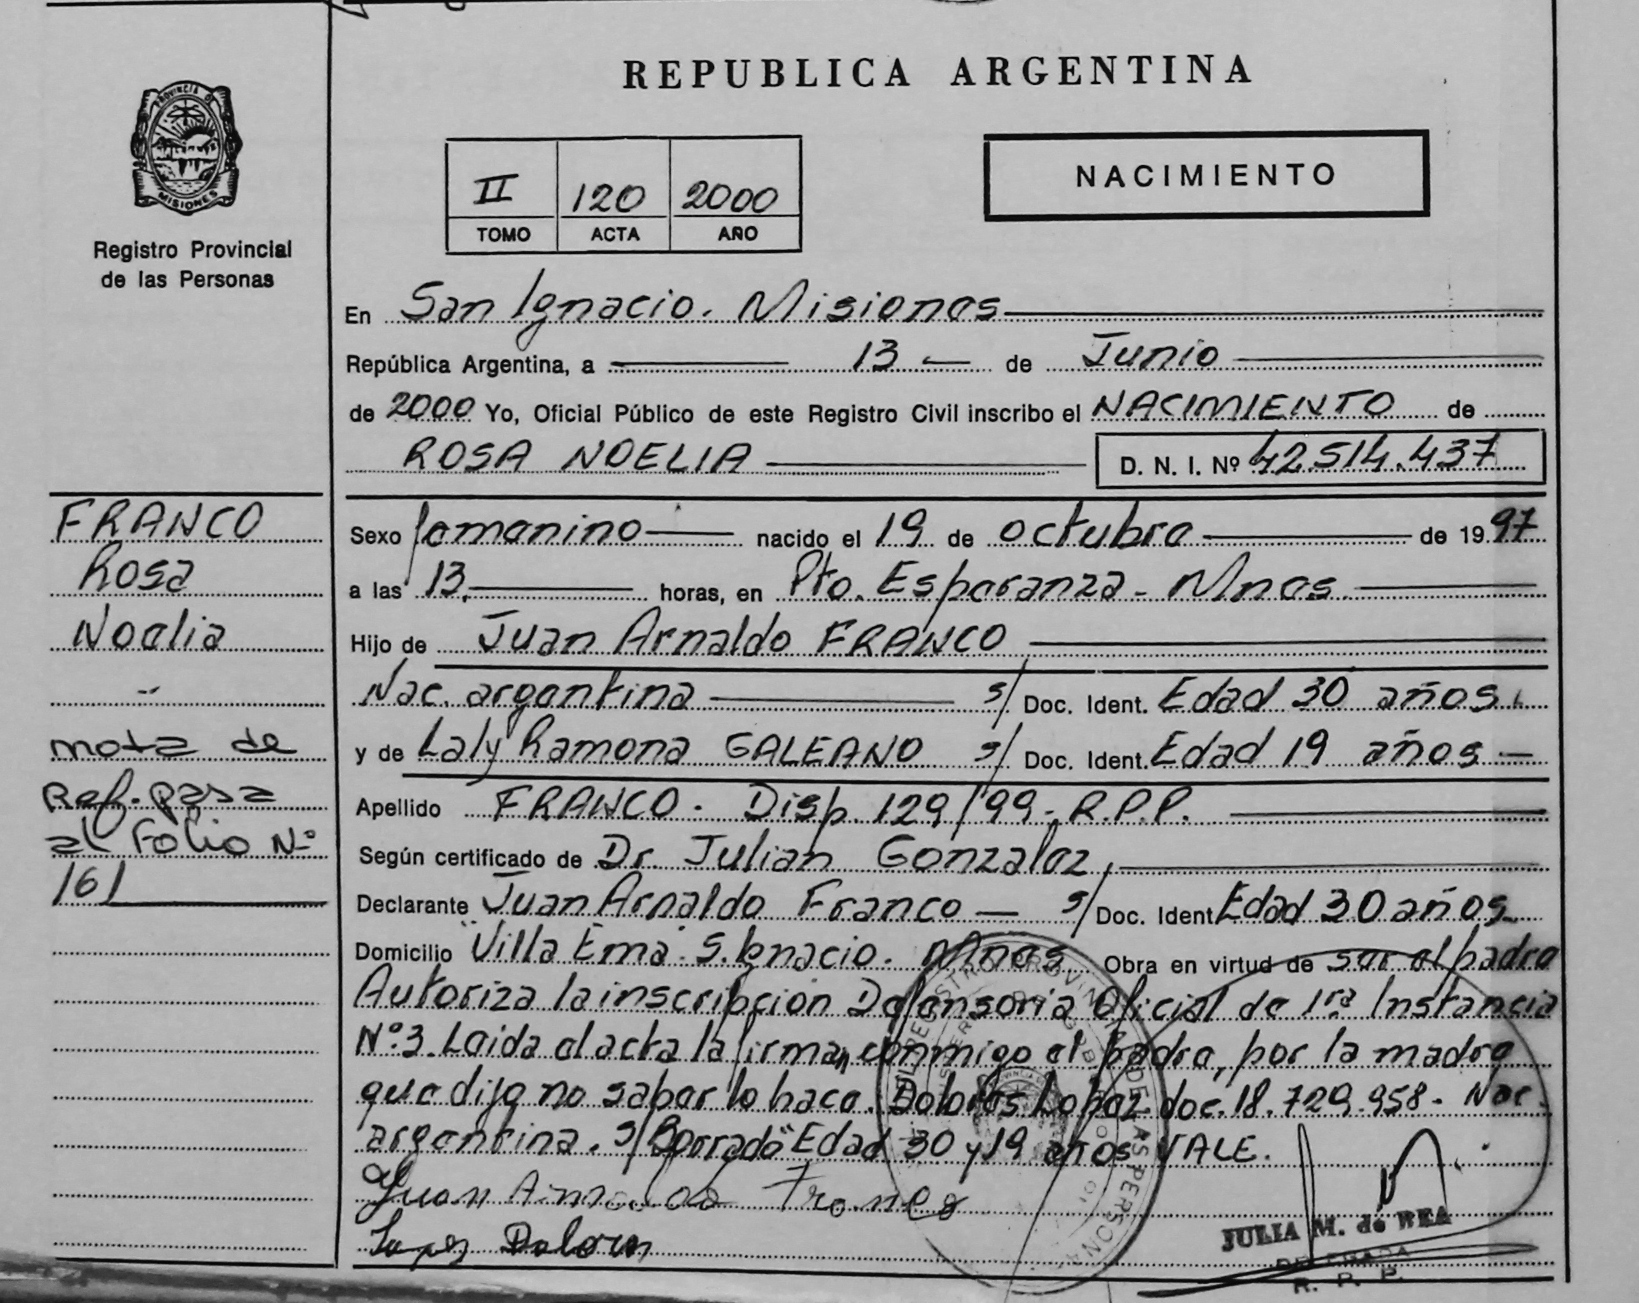 REPUBLICA ARGENTINA
PROVINCIA DE
MISIONES
Registro Provincial
de las Personas
II 120 2000
TOMO ACTA AÑO
NACIMIENTO
En San Ignacio. Misiones
República Argentina, a 13 de Junio
de 2000 Yo, Oficial Público de este Registro Civil inscribo el NACIMIENTO de
ROSA NOELIA D. N. I. Nº 42.514.437
FRANCO
Rosa
Noelia
nota de
Ref. pasa
al Folio Nº
161
Sexo femenino nacido el 19 de octubre de 1997
a las 13, horas, en Pto. Esperanza - Mnes
Hijo de Juan Arnaldo FRANCO
Nac. argentina s/ Doc. Ident. Edad 30 años
y de Laly Ramona GALEANO s/ Doc. Ident. Edad 19 años
Apellido FRANCO. Disp. 129/99 - R.P.P.
Según certificado de Dr Julian Gonzalez,
Declarante Juan Arnaldo Franco s/ Doc. Ident Edad 30 años
Domicilio "Villa Ema" S. Ignacio. Mnes Obra en virtud de ser el padre
Autoriza la inscripcion Defensoria Oficial de 1ra Instancia
Nº 3. Leida el acta la firman conmigo el padre, por la madre
que dijo no saber lo hace. Dolores Lopez doc. 18.729.958 - Nac.
argentina. s/ Borrado "Edad 30 y 19 años VALE.
Juan Arnaldo Franco
Lopez Dolores
JULIA M. de REA
DELEGADA
R. P. P.